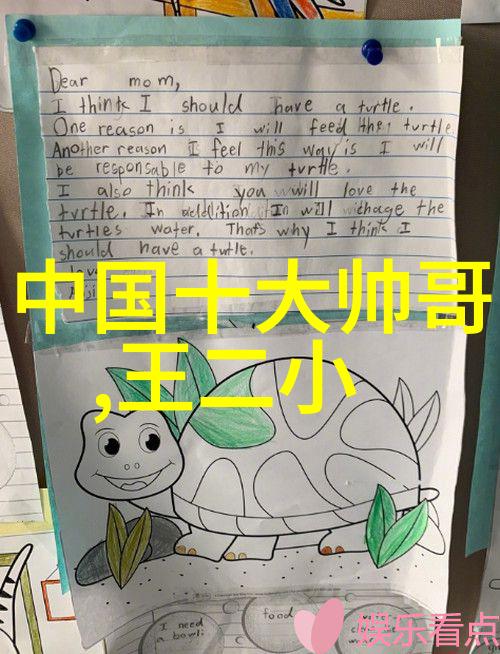 Dear mom,
I think I should have a turtle.
One reason is I will feed the turtle
Another reason I feel this way is I will
be responsable to my turtle.
I also think you will love the
turtle. In addition I will chage the
turtles water. That's why I think I
should have a turtle.
中国十大帅哥
,王二小
I need
a bowl
food
娱乐看点